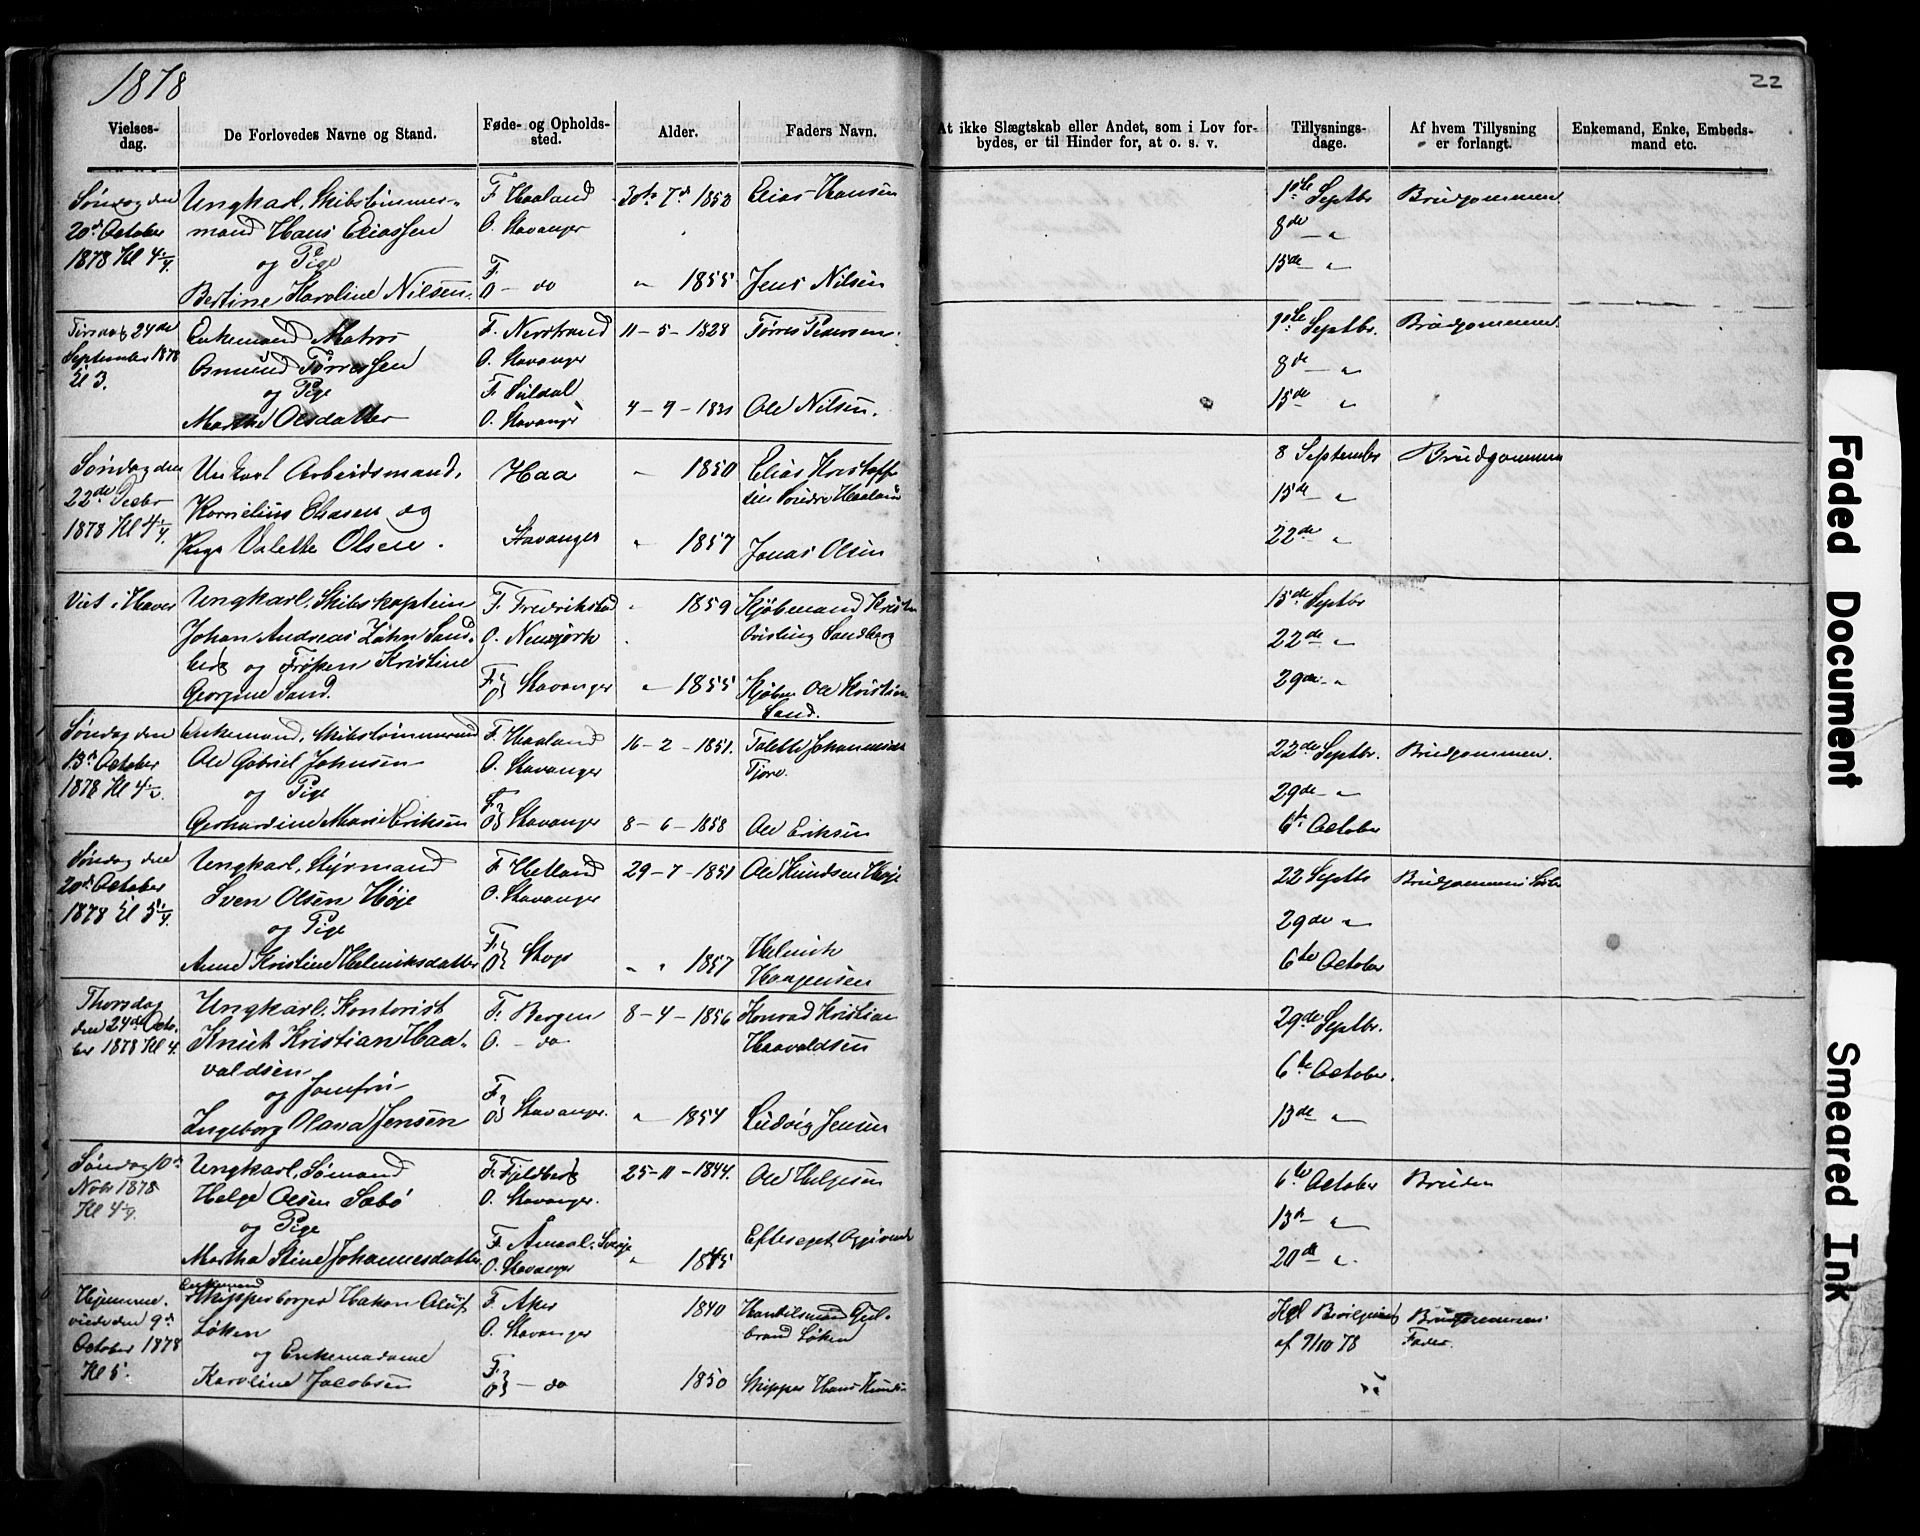 1878
22
Vielses-dag.
De Forlovedes Navne og Stand.
Føde- og Opholds-sted.
Alder.
Faders Navn.
At ikke Slægtskab eller Andet, som i Lov for-bydes, er til Hinder for, at o. s. v.
Tillysnings-dage.
Af hvem Tillysning er forlangt.
Enkemand, Enke, Embeds-mand etc.
Søndag den Ungkarl, Skibstimmer- F. Haaland 1853 Elias Hansen 1ste Septbr Brudgommen
20de October mand Hans Eliassen O. Stavanger 8de — "
1878 Kl 4 1/4. og Pige 15de — "
Bertine Karoline Nilsen. F. O — do " 1855 Jens Nilsen
Tirsdag 24de Enkemand Matros F. Nerstrand 11-5-1828 Tørres Pedersen. 1ste Septbr. Brudgommen
September 1878 Osmund Tørressen O. Stavanger 8de — "
Kl 3. og Pige F. Suldal 15de "
Martha Olsdatter O. Stavanger 4-9- Ole Nilsen.
Søndag den Arbeidsmand, Haa " 1850 Elias 8 September Brudgommen
22de 15de — "
1878 Kl 4 1/4. Kornelius og
Pige Valette Olsen. Stavanger " 1857 Jonas Olsen 22de "
Viet i Ungkarl, Skibskaptein F. Fredrikstad " 1859 Kjøbmand 15de Septbr
Johan Andreas Zahn Sand- O. Newyork Sandberg 22de — "
berg og Frøken Kristine
Georgine Sand. F. O Stavanger " 1855 Ole Kristian Sand. 29de — "
Søndag den Enkemand, F. Haaland 16-2-1851. 22de Septbr. Brudgommen.
13de October Ole Gabriel Johnsen O. Stavanger
1878 Kl og Pige 29de — "
Gerhardine Marie Eriksen F. O Stavanger 8-6-1858 Ole Eriksen 6te October
Søndag den Ungkarl, Styrmand F. Hetland 29-7-1851 Ole Knudsen Høje 22 Septbr Brudgommens
20de October Sven Olsen Høje O. Stavanger
1878 Kl 5 1/4. og Pige 29de "
Anne Kristine Helmiksdatter F. O " " 1857 6te October
Thorsdag Ungkarl, Kontorist F. Bergen 8-4-1856 Konrad Kristian 29de Septbr.
den 24de Octo- Knut Kristian Haa- O. — do Haavaldsen
ber 1878 Kl 4. valdsen 6te October.
og Jomfru
Ingeborg Olava Jensen F. O Stavanger. " 1854 Ludvig Jensen 13de "
Søndag 10de Ungkarl, Sømand F. Fjeldberg 25-11-1844. Ole Helgesen 6te October Bruden
Nobr 1878 Helge Olsen Sæbø O. Stavanger.
Kl 4 1/4. og Pige 13de "
Martha Stine Johannesdatter F. Åmaal, O. Stavanger " 1845 20de "
Hjemme- Enkemand
viede den 9de Skipperborger Hakon Oluf F. Aker 1840 Handelsmand Gul- Kgl Bevilgning Brudgommens
October 1878 Løken O. Stavanger brand Løken af 7/10 78 Fader.
Kl 5. og Enkemadame
Karoline Jacobsen F. O — do 1850 Skipper Hans
Faded Document
Smeared Ink